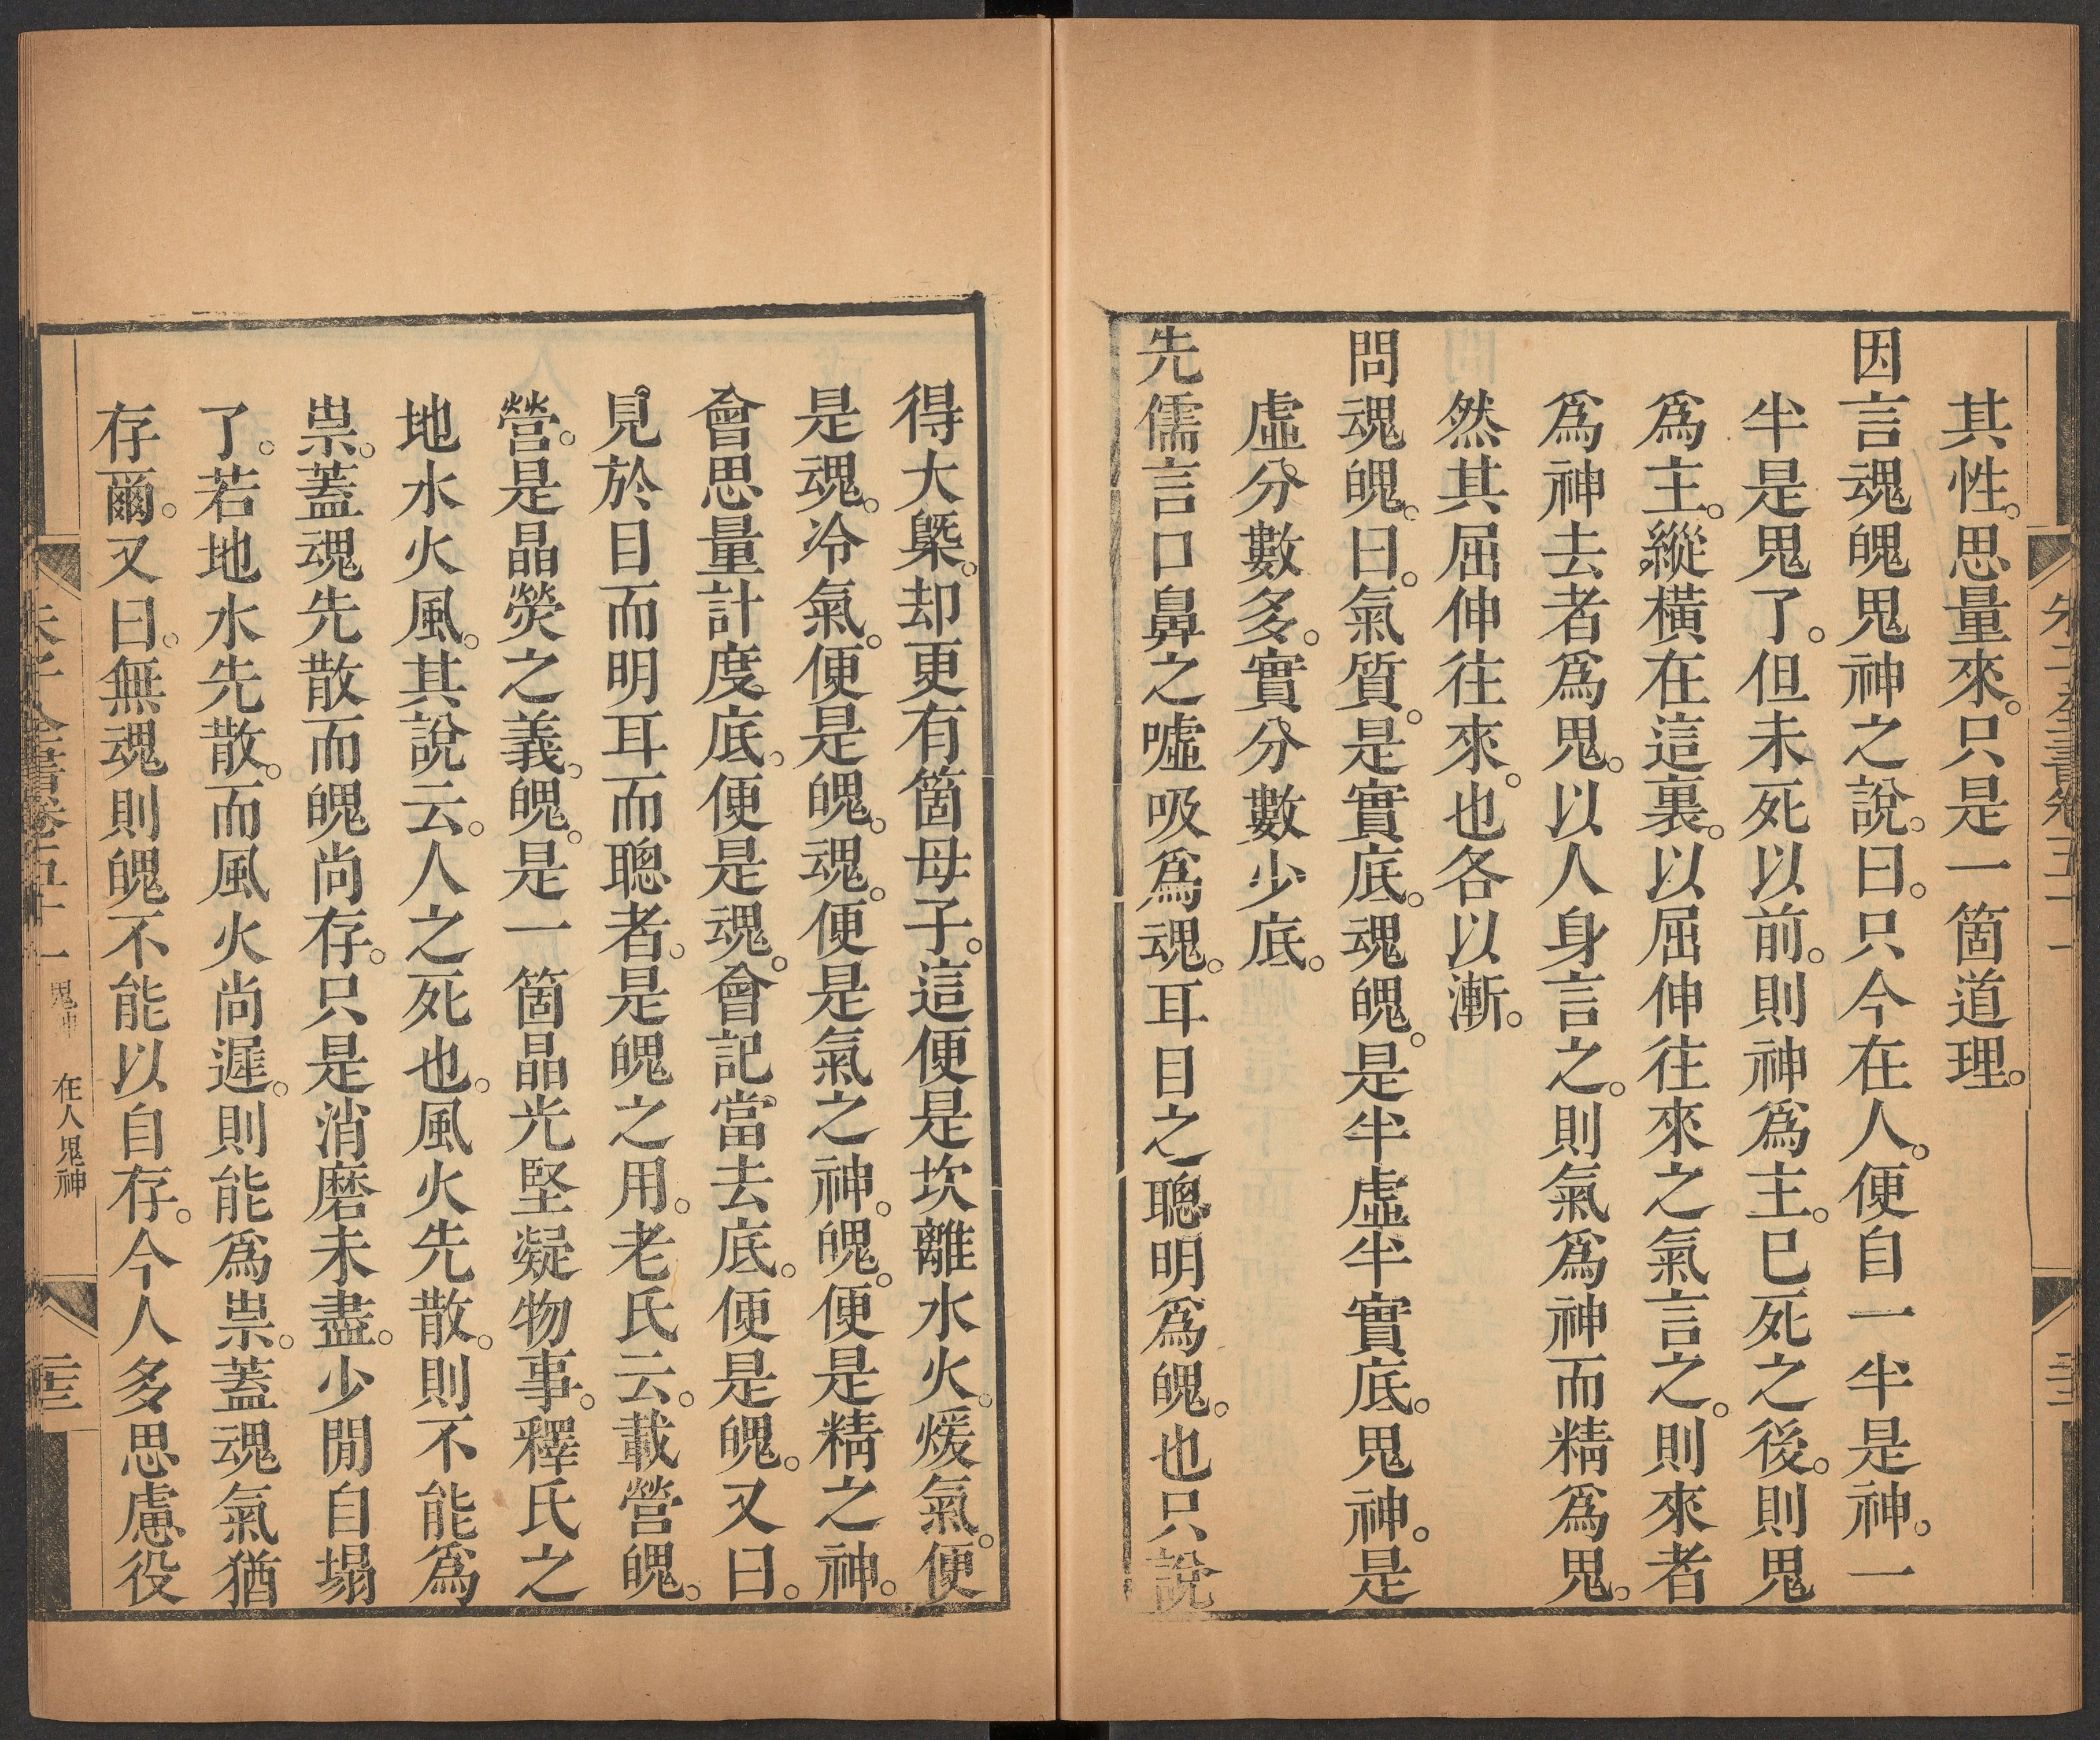 其性。思量來。只是一箇道理。
因言魂魄鬼神之說。曰。只今在人。便自一半是神。一
半是鬼了。但未死以前。則神爲主。已死之後。則鬼
爲主。縱橫在這裏。以屈伸往來之氣言之。則來者
爲神去者爲鬼。以人身言之。則氣爲神而精爲鬼。
然其屈伸往來。也各以漸。
問魂魄。曰。氣質。是實底。魂魄。是半虛半實底。鬼神。是
虛分數多。實分數少底。
先儒言口鼻之噓吸爲魂。耳目之聰明爲魄。也只說
得大槩。却更有箇母子。這便是坎離水火。煖氣。便
是魂。冷氣。便是魄。魂。便是氣之神。魄。便是精之神。
會思量計度底。便是魂。會記當去底。便是魄。又曰。
見於目而明耳而聰者。是魄之用。老氏云。載營魄。
營。是晶熒之義。魄。是一箇晶光堅凝物事。釋氏之
地水火風。其說云。人之死也。風火先散。則不能爲
祟。蓋魂先散而魄尚存。只是消磨未盡。少閒自塌
了。若地水先散。而風火尚遲。則能爲祟。蓋魂氣猶
存爾。又曰。無魂則魄不能以自存。今人多思慮役
朱子全書卷五十一 鬼神 在人鬼神